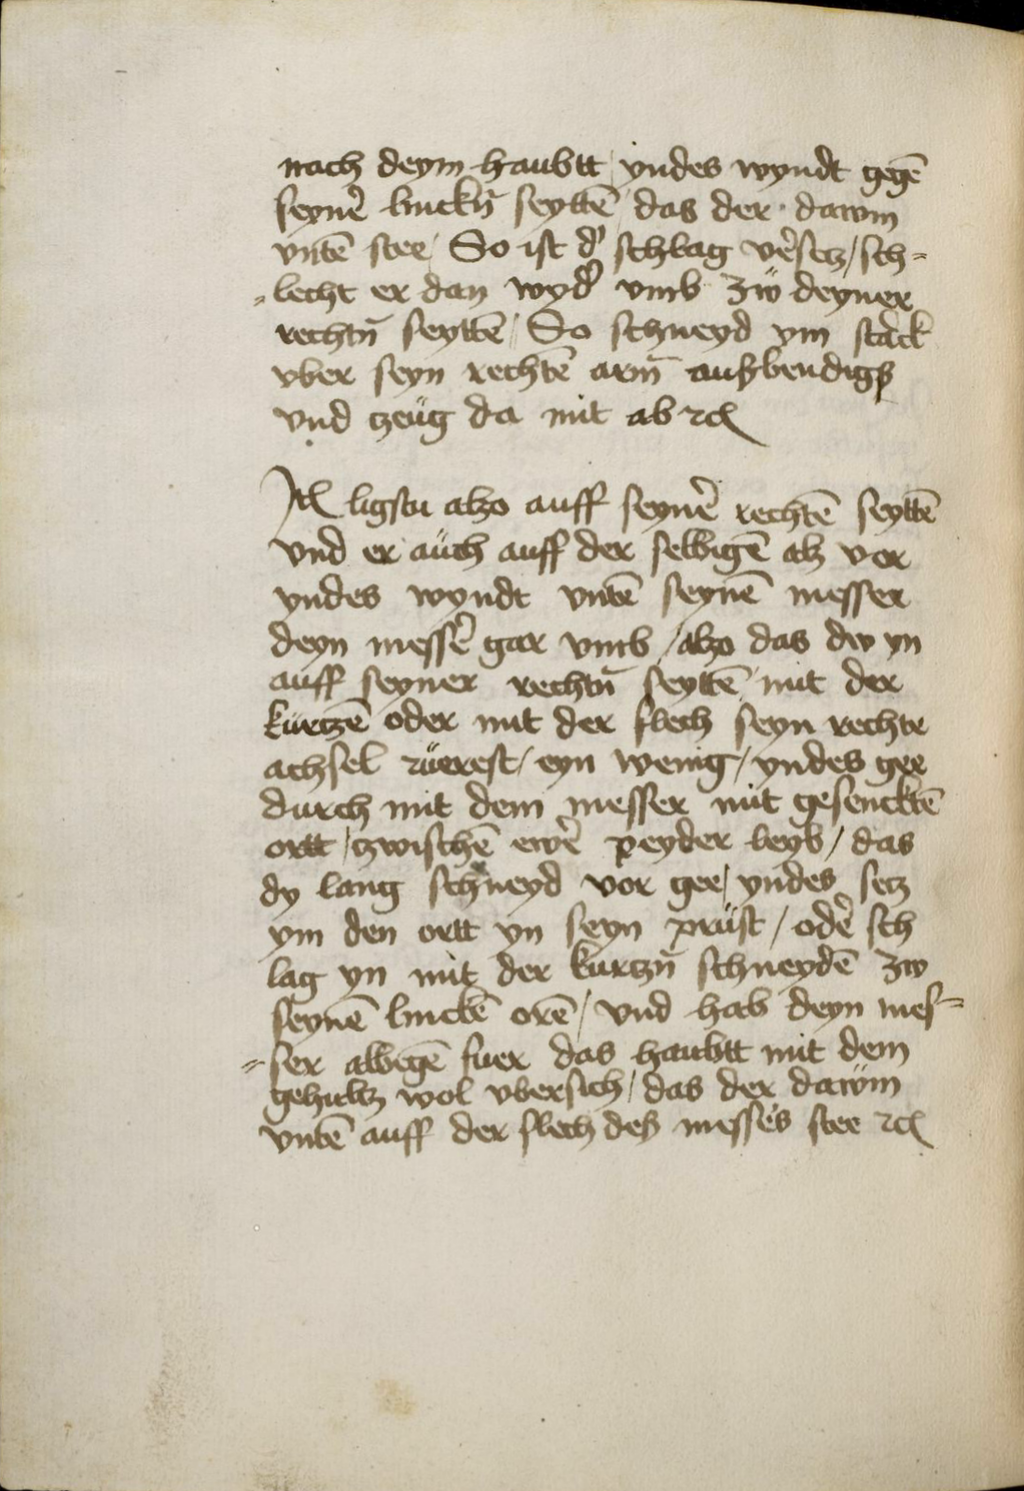 nach deym haubtt / yndes wyndt gegē
seynē linckn̄ seyttē / das der dawm
vntē stee / So ist d' schlag v'setz / sch=
=lecht er dan wyd' vmb zẅ deyner
rechtn̄ seyttē / So schneyd ym starck
vber seyn rechtē arm̄ auszbendigs
vnd tzeüg da mit ab ꝛc
Itē ligstu alzo auff seyn' rechtē seyttē
vnd er aüch auff der selbigē alz vor
yndes wyndt vntē seynē messer
deyn mess' gar vmb / alzo das dw yn
auff seyner rechtn̄ seyttē / mit der
kürtzē oder mit der flech / seyn rechte
achsel rüerest / eyn wenig / yndes gee
durch mit dem messer mit gesencktē
ortt / tzwischē ew' peyder leyb / das
dy lang schneyd vor gee / yndes setz
ym den ortt yn seyn prüst / od' sch
lag yn mit der kurtzn̄ schneydē zw
seynē linckē orē / vnd hab deyn mes=
=ser albegē fuer das haubtt mit dem
gehultz wol vbersich / das der daẅm
vntē auff der flech desz mess's stee ꝛc